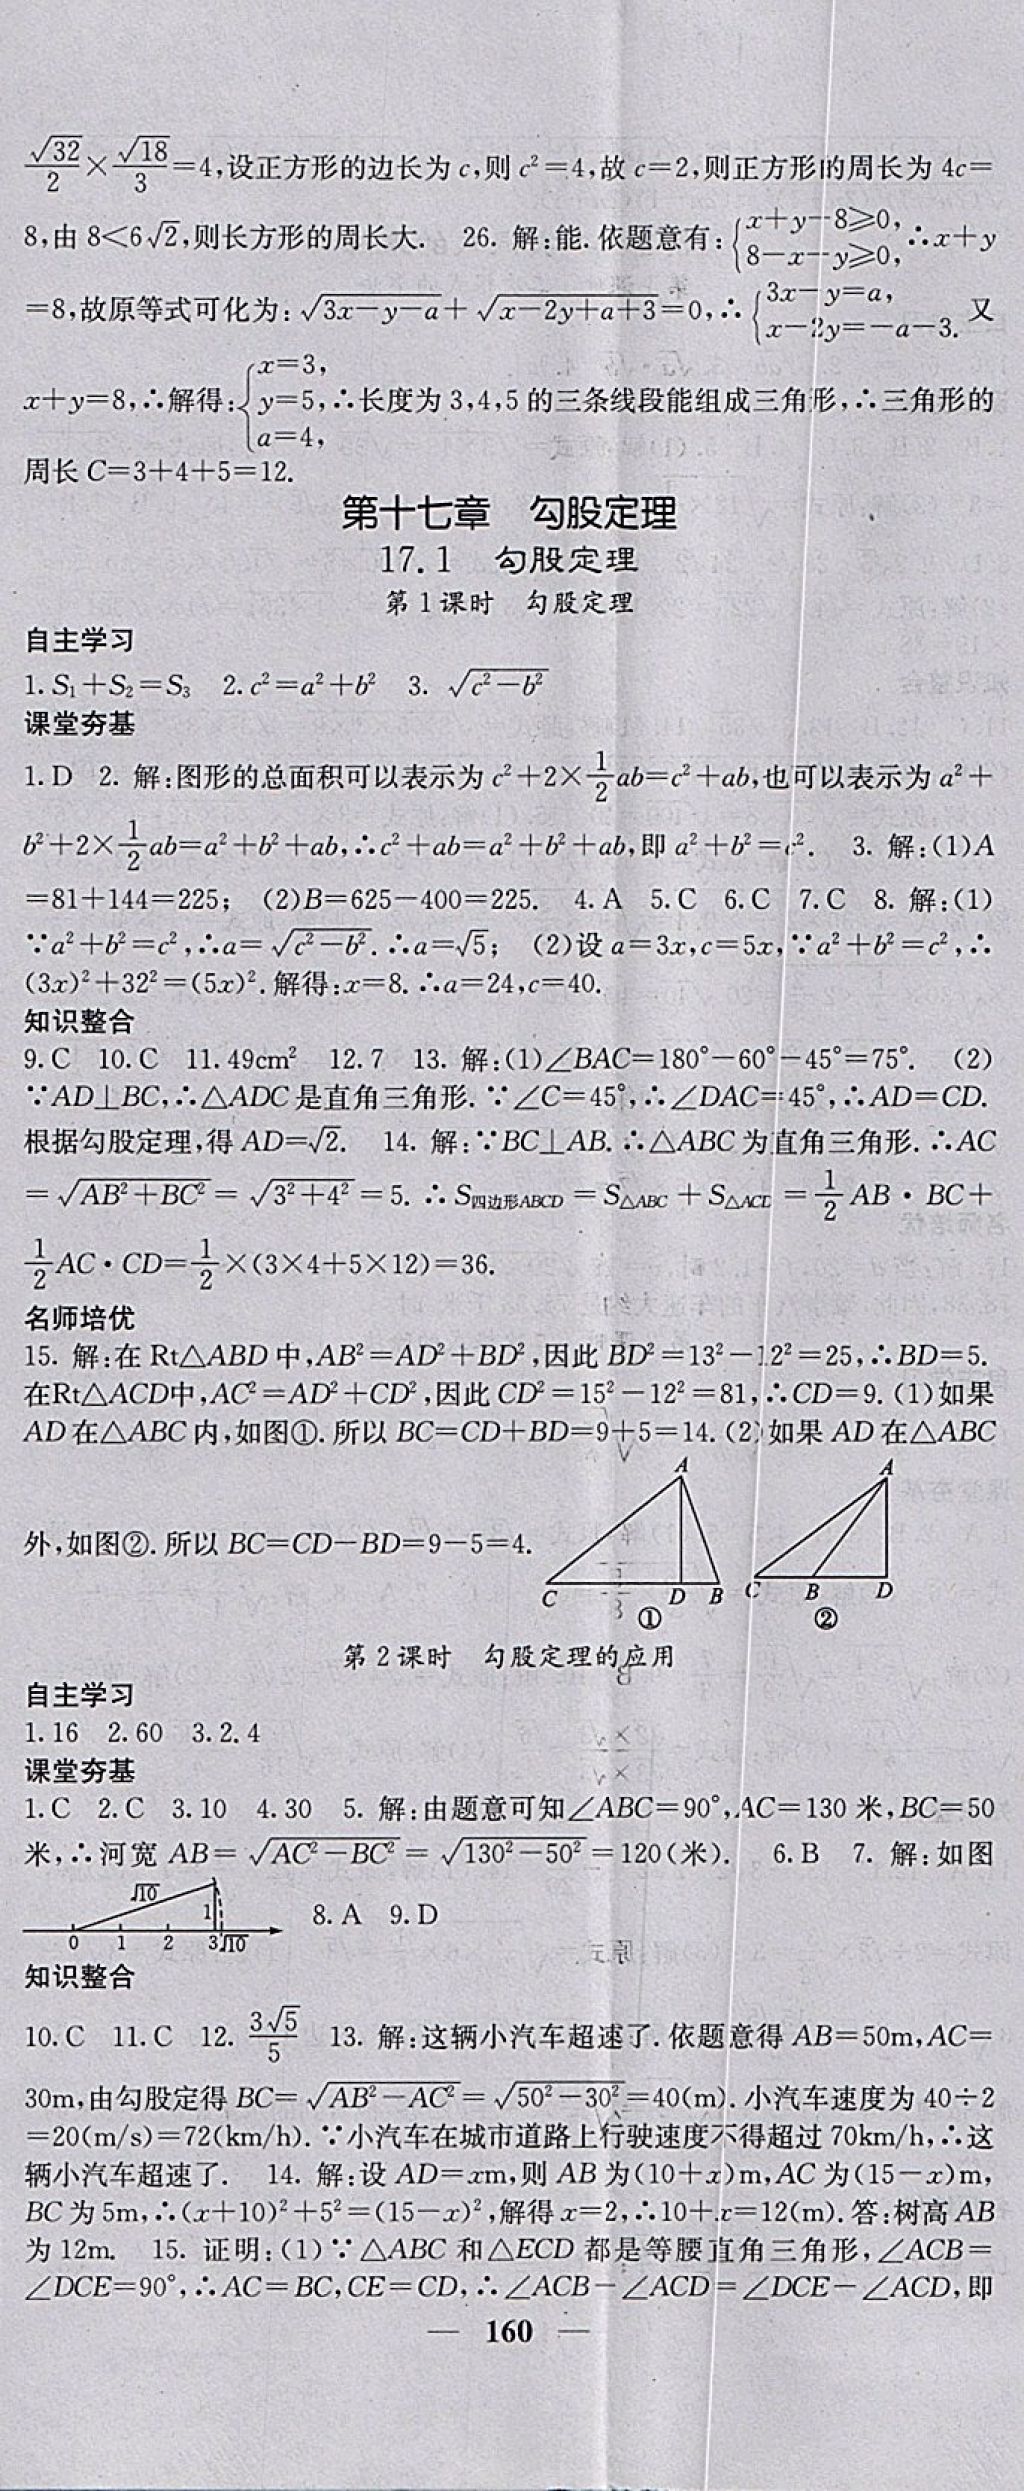 √32/2×√18/3=4,设正方形的边长为 c,则 c²=4,故 c=2,则正方形的周长为 4c=
8,由 8<6√2,则长方形的周长大. 26. 解:能.依题意有:{x+y-8≥0, 8-x-y≥0,∴x+y
=8,故原等式可化为:√(3x-y-a)+√(x-2y+a+3)=0,∴{3x-y=a, x-2y=-a-3. 又
x+y=8,∴解得:{x=3, y=5, a=4,∴长度为 3,4,5 的三条线段能组成三角形,∴三角形的
周长 C=3+4+5=12.
第十七章 勾股定理
17.1 勾股定理
第 1 课时 勾股定理
自主学习
1. S₁+S₂=S₃ 2. c²=a²+b² 3. √(c²-b²)
课堂夯基
1. D 2. 解:图形的总面积可以表示为 c²+2×1/2ab=c²+ab,也可以表示为 a²+
b²+2×1/2ab=a²+b²+ab,∴c²+ab=a²+b²+ab,即 a²+b²=c². 3. 解:(1)A
=81+144=225; (2)B=625-400=225. 4. A 5. C 6. C 7. C 8. 解:(1)
∵a²+b²=c²,∴a=√(c²-b²).∴a=√5; (2)设 a=3x,c=5x,∵a²+b²=c²,∴
(3x)²+32²=(5x)².解得:x=8.∴a=24,c=40.
知识整合
9. C 10. C 11. 49cm² 12. 7 13. 解:(1)∠BAC=180°-60°-45°=75°. (2)
∵AD⊥BC,∴△ADC 是直角三角形.∵∠C=45°,∴∠DAC=45°,∴AD=CD.
根据勾股定理,得 AD=√2. 14. 解:∵BC⊥AB.∴△ABC 为直角三角形.∴AC
=√(AB²+BC²)=√(3²+4²)=5.∴S四边形ABCD=S△ABC+S△ACD=1/2 AB·BC+
1/2 AC·CD=1/2×(3×4+5×12)=36.
名师培优
15. 解:在 Rt△ABD 中,AB²=AD²+BD²,因此 BD²=13²-12²=25,∴BD=5.
在Rt△ACD中,AC²=AD²+CD²,因此 CD²=15²-12²=81,∴CD=9.(1)如果
AD 在△ABC 内,如图①.所以 BC=CD+BD=9+5=14.(2)如果 AD 在△ABC
外,如图②.所以 BC=CD-BD=9-5=4.
A
C D B
①
A
C B D
②
第 2 课时 勾股定理的应用
自主学习
1. 16 2. 60 3. 2.4
课堂夯基
1. C 2. C 3. 10 4. 30 5. 解:由题意可知∠ABC=90°,AC=130 米,BC=50
米,∴河宽 AB=√(AC²-BC²)=√(130²-50²)=120(米). 6. B 7. 解:如图
√10
1
0 1 2 3 √10
8. A 9. D
知识整合
10. C 11. C 12. 3√5/5 13. 解:这辆小汽车超速了.依题意得 AB=50m,AC=
30m,由勾股定得 BC=√(AB²-AC²)=√(50²-30²)=40(m).小汽车速度为 40÷2
=20(m/s)=72(km/h).∵小汽车在城市道路上行驶速度不得超过 70km/h,∴这
辆小汽车超速了. 14. 解:设 AD=xm,则 AB 为(10+x)m,AC 为(15-x)m,
BC 为 5m,∴(x+10)²+5²=(15-x)²,解得 x=2,∴10+x=12(m).答:树高 AB
为 12m. 15. 证明:(1)∵△ABC 和△ECD 都是等腰直角三角形,∠ACB=
∠DCE=90°,∴AC=BC,CE=CD,∴∠ACB-∠ACD=∠DCE-∠ACD,即
— 160 —